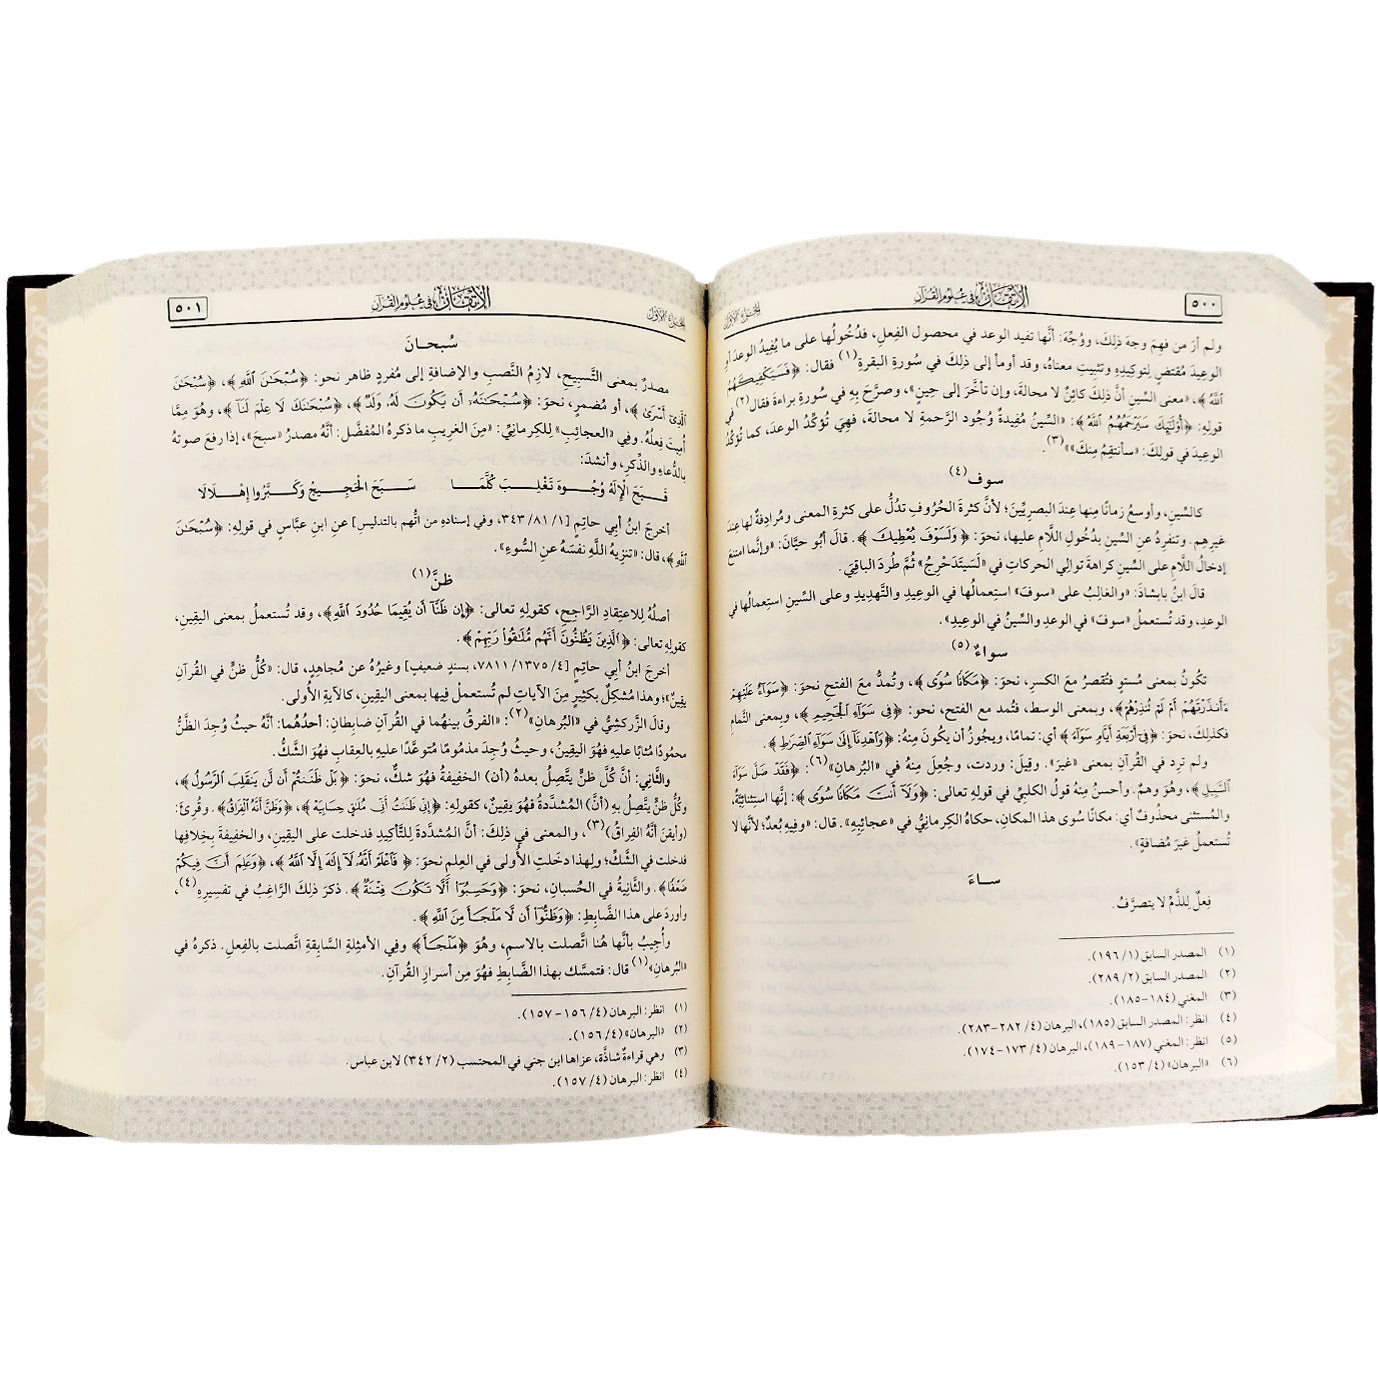 ٥٠٠
الإتقان في علوم القرآن
الجزء الأول
ولم أرَ من فهِمَ وجهَ ذلِكَ، ووُجِّهَ: أنَّها تفيد الوعد في محصول الفِعلِ، فدُخُولُها على ما يُفِيدُ الوعدَ أو
الوعِيدَ مُقتضٍ لِتوكِيدِهِ وتثبِيتِ معناهُ، وقد أومأ إلى ذلِكَ في سُورةِ البقرةِ(١) فقال: ﴿فَسَيَكْفِيكَهُمُ
ٱللَّهُ﴾، «معنى السِّين أنَّ ذلك كائِنٌ لا محالة، وإن تأخَّرَ إلى حِينٍ»، وصرَّحَ بِهِ في سُورةِ براءة فقال(٢) في
قولِهِ: ﴿أُوْلَٰٓئِكَ سَيَرْحَمُهُمُ ٱللَّهُ﴾: «السِّينُ مُفِيدةٌ وُجُود الرَّحمةِ لا محالةَ، فهِيَ تُؤكِّدُ الوعدَ، كما تُؤكِّدُ
الوعِيدَ في قولِكَ: «سأنتقِمُ مِنكَ»»(٣).
سوف(٤)
كالسِّينِ، وأوسعُ زمانًا مِنها عِندَ البصرِيِّينَ؛ لأنَّ كثرةَ الحُرُوفِ تدُلُّ على كثرةِ المعنى ومُرادِفةٌ لها عِندَ
غيرِهِم. وتنفرِدُ عنِ السِّينِ بِدُخُولِ اللَّامِ عليها، نحوَ: ﴿وَلَسَوْفَ يُعْطِيكَ﴾. قالَ أبُو حيَّان: «وإنَّما امتنعَ
إدخالُ اللَّامِ على السِّينِ كراهةَ توالِي الحركاتِ في «لَسَيَتَدَحْرِجُ» ثُمَّ طُردَ الباقِيَ.
قالَ ابنُ بابشاذ: «والغالِبُ على «سوفَ» استِعمالُها في الوعِيدِ والتَّهدِيدِ وعلى السِّينِ استِعمالُها في
الوعدِ، وقد تُستعملُ «سوفَ» في الوعدِ والسِّينُ في الوعِيدِ».
سواءٌ(٥)
تكُونُ بمعنى مُستوٍ فتُقصرُ معَ الكسرِ، نحوَ: ﴿مَكَانًا سُوًى﴾، وتُمدُّ معَ الفتحِ نحوَ: ﴿سَوَآءٌ عَلَيْهِمْ
ءَأَنذَرْتَهُمْ أَمْ لَمْ تُنذِرْهُمْ﴾، وبِمعنى الوسط، فتُمد مع الفتح، نحو: ﴿فِى سَوَآءِ ٱلْجَحِيمِ﴾، وبِمعنى التَّمامِ
فكذلِكَ، نحوَ: ﴿فِىٓ أَرْبَعَةِ أَيَّامٍ سَوَآءً﴾ أي: تمامًا، ويجوزُ أن يكُونَ مِنهُ: ﴿وَٱهْدِنَآ إِلَىٰ سَوَآءِ ٱلصِّرَٰطِ﴾.
ولم ترِد في القُرآنِ بمعنى «غيرَ». وقِيلَ: وردت، وجُعِلَ مِنهُ في «البُرهانِ»(٦): ﴿فَقَدْ ضَلَّ سَوَآءَ
ٱلسَّبِيلِ﴾، وهُوَ وهمٌ. وأحسنُ مِنهُ قولُ الكلبِيِّ في قولِهِ تعالى: ﴿وَلَآ أَنتَ مَكَانًا سُوًى﴾: إنَّها استِثنائِيَّةٌ،
والمُستثنى محذُوفٌ أي: مكانًا سُوى هذا المكانِ، حكاهُ الكِرمانِيُّ في «عجائِبِهِ». قال: «وفِيهِ بُعدٌ؛ لأنَّها لا
تُستعملُ غيرَ مُضافةٍ».
سـاءَ
فِعلٌ لِلذَّمِّ لا يتصرَّفُ.
(١) المصدر السابق (١/ ١٩٦).
(٢) المصدر السابق (٢/ ٢٨٩).
(٣) المغني (١٨٤-١٨٥).
(٤) انظر: المصدر السابق (١٨٥)، البرهان (٤/ ٢٨٢-٢٨٣).
(٥) انظر: المغني (١٨٧-١٨٩)، البرهان (٤/ ١٧٣-١٧٤).
(٦) «البرهان» (٤/ ١٥٣).
الجزء الأول
الإتقان في علوم القرآن
٥٠١
سُبحـانَ
مصدرٌ بمعنى التَّسبِيحِ، لازِمُ النَّصبِ والإضافةِ إلى مُفردٍ ظاهر نحو: ﴿سُبْحَٰنَ ٱللَّهِ﴾، ﴿سُبْحَٰنَ
ٱلَّذِىٓ أَسْرَىٰ﴾، أو مُضمرٍ، نحوَ: ﴿سُبْحَٰنَهُۥٓ أَن يَكُونَ لَهُۥ وَلَدٌ﴾، ﴿سُبْحَٰنَكَ لَا عِلْمَ لَنَآ﴾، وهُوَ مِمَّا
أُمِيتَ فِعلُهُ. وفِي «العجائِبِ» لِلكِرمانِيِّ: «مِنَ الغرِيبِ ما ذكرهُ المُفضَّل: أنَّهُ مصدرُ «سبحَ»، إذا رفعَ صوتهُ
بالدُّعاءِ والذِّكرِ، وأنشدَ:
قَـبَحَ الْإِلَهُ وُجُـوهَ تَغْلِـبَ كُلَّمَـا    سَـبَحَ الْحَجِـيجُ وَكَـبَّرُوا إِهْـلَالَا
أخرجَ ابنُ أبِي حاتِمٍ [١/ ٨١/ ٣٤٣، وفي إسناده من اتُّهم بالتدليس] عنِ ابنِ عبَّاسٍ في قولِهِ: ﴿سُبْحَٰنَ
ٱللَّهِ﴾، قال: «تنزِيهُ اللَّهِ نفسَهُ عنِ السُّوءِ».
ظنَّ(١)
أصلُهُ لِلاعتِقادِ الرَّاجِحِ، كقولِهِ تعالى: ﴿إِن ظَنَّآ أَن يُقِيمَا حُدُودَ ٱللَّهِ﴾، وقد تُستعملُ بمعنى اليقِينِ،
كقولِهِ تعالى: ﴿ٱلَّذِينَ يَظُنُّونَ أَنَّهُم مُّلَٰقُوا۟ رَبِّهِمْ﴾.
أخرجَ ابنُ أبِي حاتِمٍ [٤/ ١٣٧٥/ ٧٨١١، بسندٍ ضعيف] وغيرُهُ عن مُجاهِدٍ، قال: «كُلُّ ظنٍّ في القُرآنِ
يقِينٌ»؛ وهذا مُشكِلٌ بكثِيرٍ مِنَ الآياتِ لم تُستعملُ فِيها بمعنى اليقِينِ، كالآيةِ الأُولى.
وقالَ الزَّركشِيُّ في «البُرهانِ»(٢): «الفرقُ بينهُما في القُرآنِ ضابِطانِ: أحدُهُما: أنَّهُ حيثُ وُجِدَ الظَّنُّ
محمُودًا مُثابًا عليهِ فهُوَ اليقِينُ، وحيثُ وُجِدَ مذمُومًا مُتوعَّدًا عليهِ بالعِقابِ فهُوَ الشَّكُّ.
والثَّانِي: أنَّ كُلَّ ظنٍّ يتَّصِلُ بعدهُ (أن) الخفِيفةُ فهُوَ شكٌّ، نحوَ: ﴿بَلْ ظَنَنتُمْ أَن لَّن يَنقَلِبَ ٱلرَّسُولُ﴾،
وكُلُّ ظنٍّ يتَّصِلُ بِهِ (أنَّ) المُشدَّدةُ فهُوَ يقِينٌ، كقولِهِ: ﴿إِنِّى ظَنَنتُ أَنِّى مُلَٰقٍ حِسَابِيَهْ﴾، ﴿وَظَنَّ أَنَّهُ ٱلْفِرَاقُ﴾. وقُرِئَ:
(وأيقنَ أنَّهُ الفِراقُ)(٣)، والمعنى في ذلِكَ: أنَّ المُشدَّدةَ لِلتَّأكِيدِ فدخلت على اليقِينِ، والخفِيفةَ بخِلافِها
فدخلت في الشَّكِّ؛ ولِهذا دخلتِ الأُولى في العِلمِ نحوَ: ﴿فَٱعْلَمْ أَنَّهُۥ لَآ إِلَٰهَ إِلَّا ٱللَّهُ﴾، ﴿وَعَلِمَ أَنَّ فِيكُمْ
ضَعْفًا﴾. والثَّانِيةُ في الحُسبانِ، نحوَ: ﴿وَحَسِبُوٓا۟ أَلَّا تَكُونَ فِتْنَةٌ﴾. ذكرَ ذلِكَ الرَّاغِبُ في تفسِيرِهِ(٤)،
وأوردَ على هذا الضَّابِطِ: ﴿وَظَنُّوٓا۟ أَن لَّا مَلْجَأَ مِنَ ٱللَّهِ﴾.
وأُجِيبُ بأنَّها هُنا اتَّصلت بالاسمِ، وهُوَ ﴿مَلْجَأَ﴾ وفِي الأمثِلةِ السَّابِقةِ اتَّصلت بالفِعلِ. ذكرهُ في
«البُرهانِ»(١) قال: فتمسَّك بهذا الضَّابِطِ فهُوَ مِن أسرارِ القُرآنِ.
(١) انظر: البرهان (٤/ ١٥٦-١٥٧).
(٢) «البرهان» (٤/ ١٥٦).
(٣) وهي قراءةٌ شاذَّة، عزاها ابن جني في المحتسب (٢/ ٣٤٢) لابن عباس.
(٤) انظر: البرهان (٤/ ١٥٧).